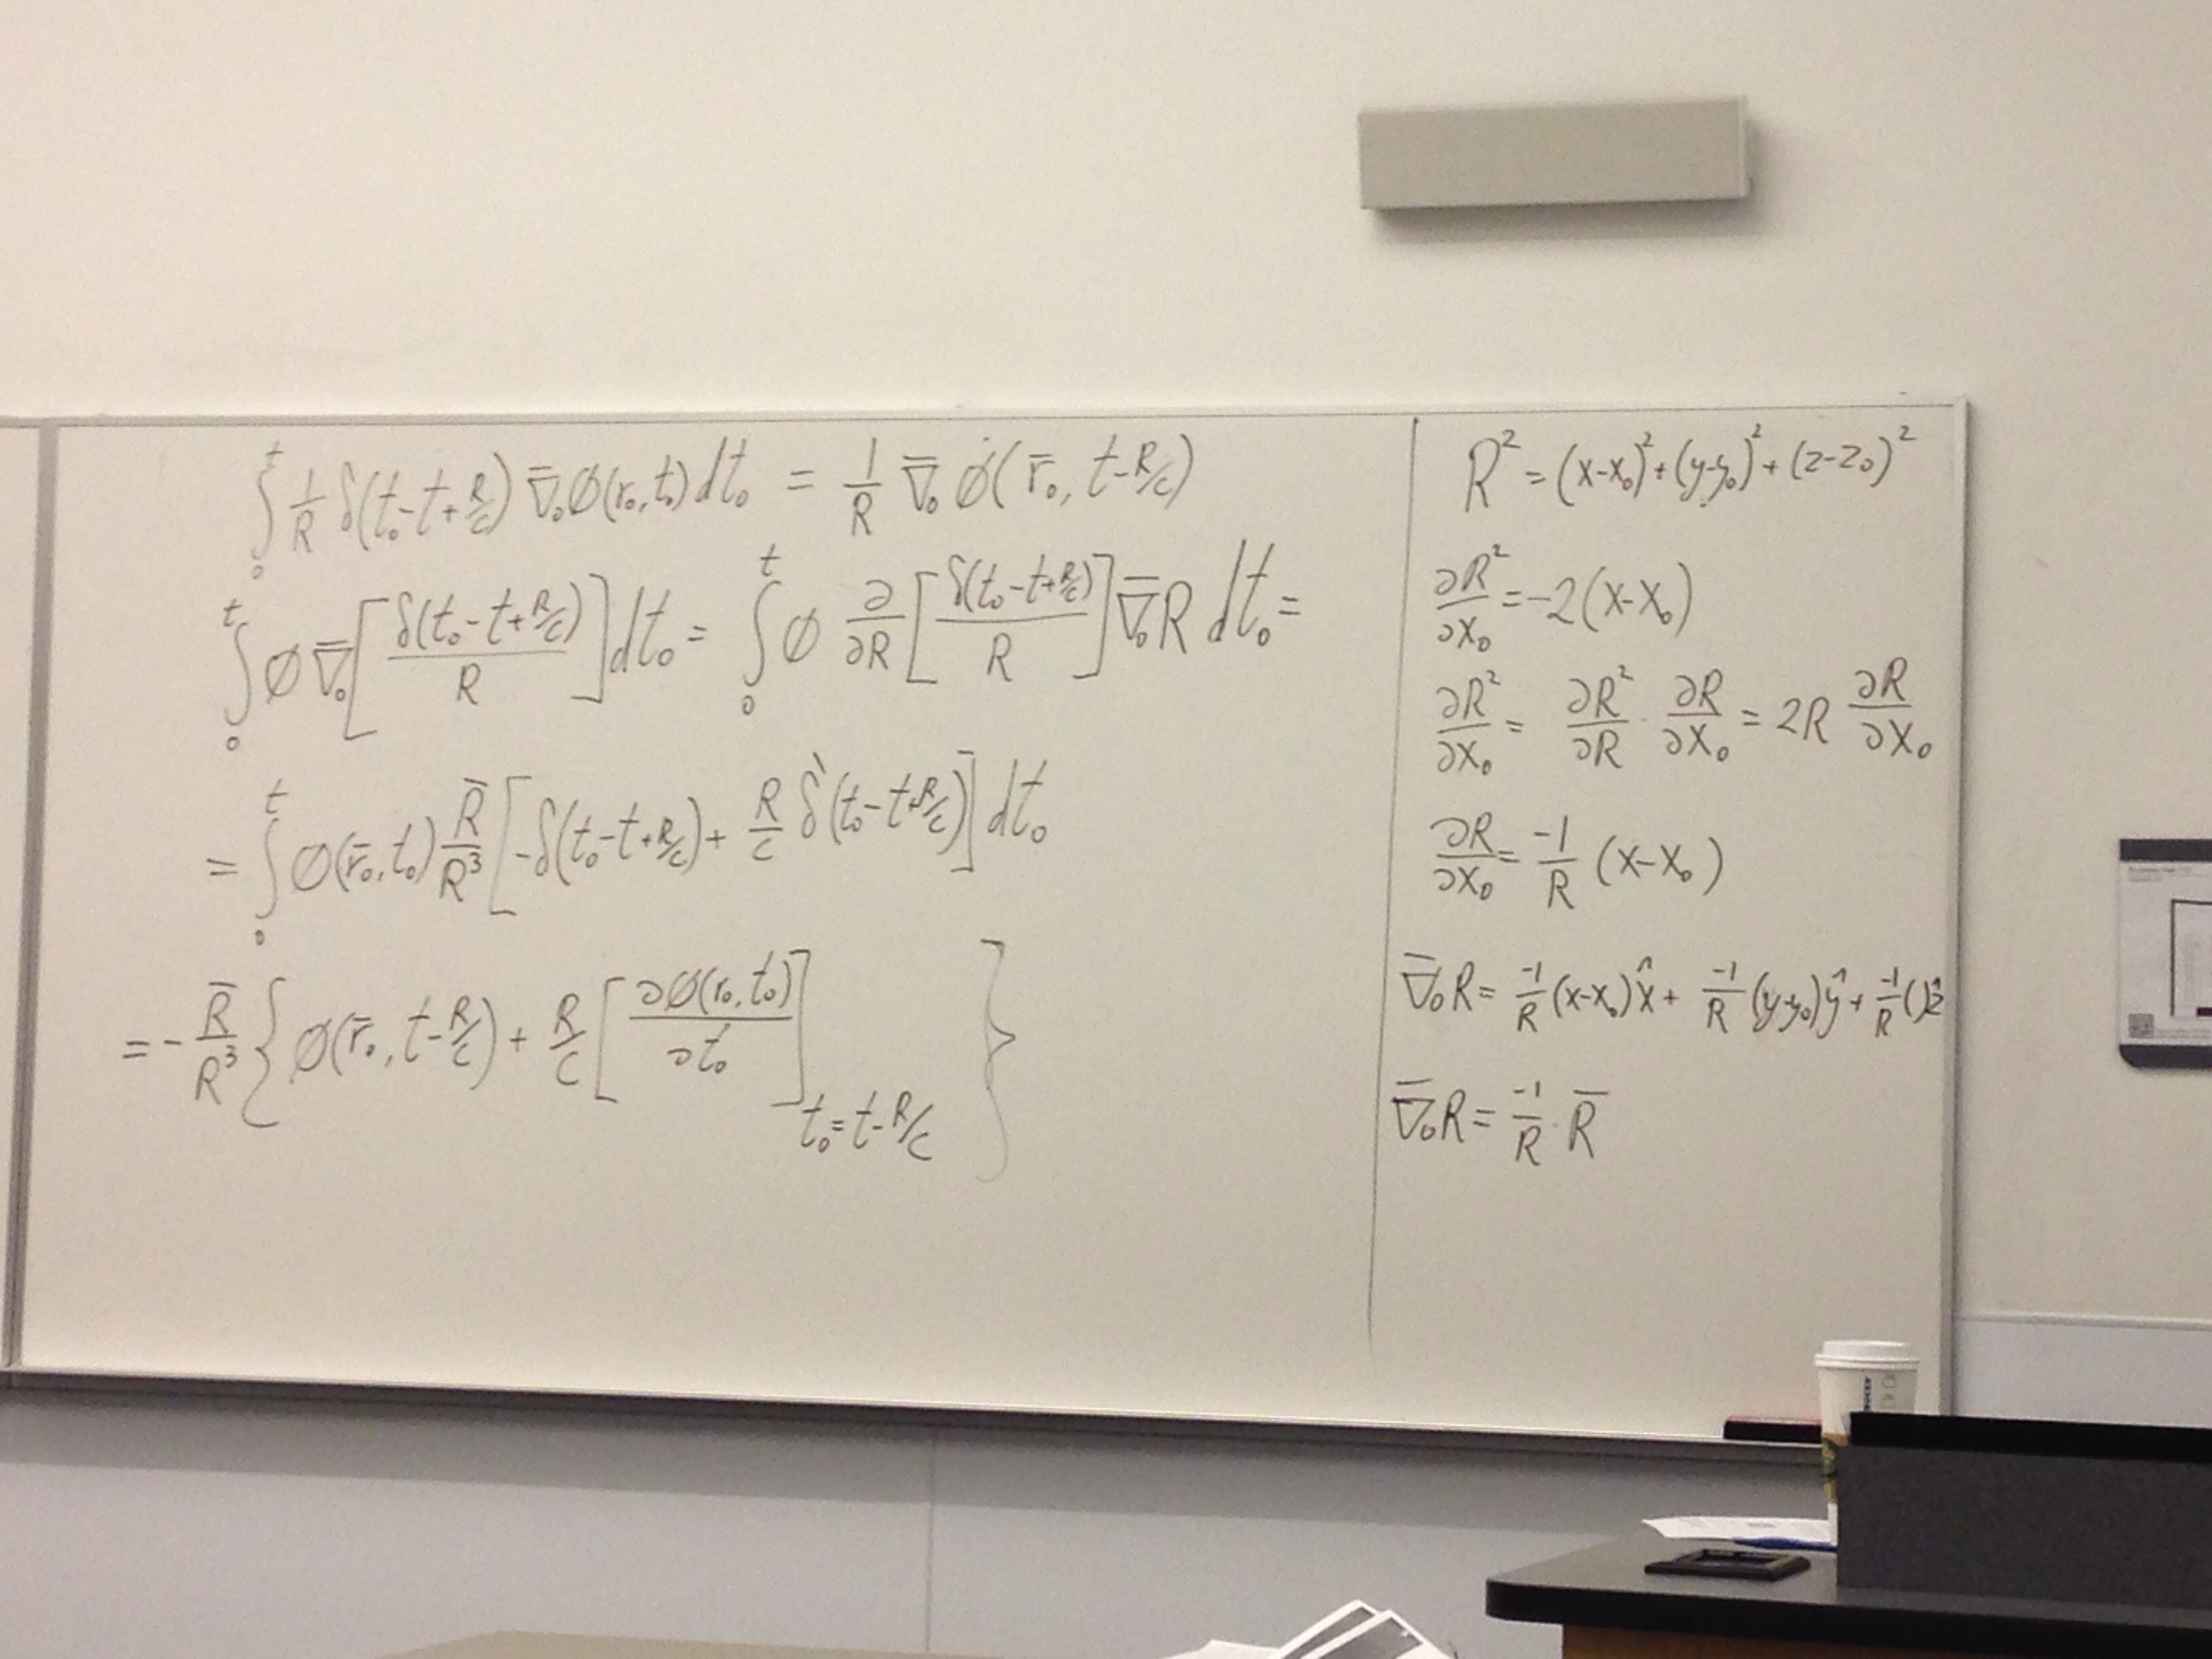 ∫₀ᵗ 1/R δ(t₀-t+R/c) ∇̄₀Ø(r₀,t₀)dt₀ = 1/R ∇̄₀ Ø(r̄₀, t-R/c)
∫₀ᵗ Ø ∇̄₀[δ(t₀-t+R/c)/R]dt₀ = ∫₀ᵗ Ø ∂/∂R [δ(t₀-t+R/c)/R] ∇̄₀R dt₀ =
= ∫₀ᵗ Ø(r̄₀,t₀) R̄/R³ [-δ(t₀-t+R/c) + R/c δ`(t₀-t+R/c)] dt₀
= - R̄/R³ { Ø(r̄₀, t-R/c) + R/c [∂Ø(r₀,t₀)/∂t₀] t₀=t-R/c }
R² = (x-x₀)² + (y-y₀)² + (z-z₀)²
∂R²/∂x₀ = -2(x-x₀)
∂R²/∂x₀ = ∂R²/∂R · ∂R/∂x₀ = 2R ∂R/∂x₀
∂R/∂x₀ = -1/R (x-x₀)
∇̄₀R = -1/R (x-x₀)x̂ + -1/R (y-y₀)ŷ + -1/R ()ẑ
∇̄₀R = -1/R · R̄